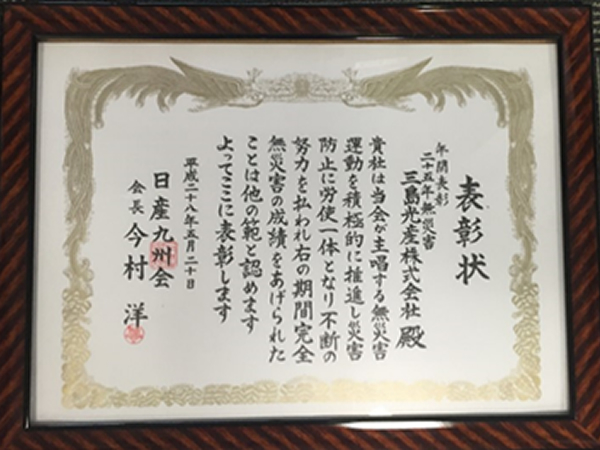 表彰状
年間表彰
二十五年無災害
三島光産株式会社 殿
貴社は当会が主唱する無災害
運動を積極的に推進し災害
防止に労使一体となり不断の
努力を払われ右の期間完全
無災害の成績をあげられた
ことは他の範と認めます
よってここに表彰します
平成二十八年五月二十日
日産九州会
会長 今村 洋